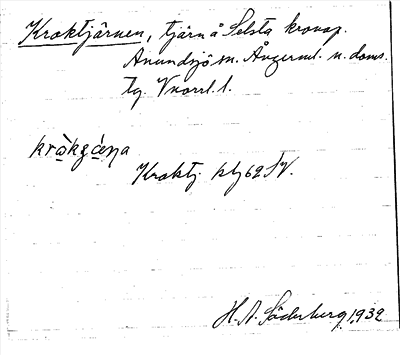 Kroktjärnen, tjärn å Selsta kronop.
Anundsjö sn. Ångerml. n. doms.
lg. Vnorrl. l.
Kroktj. kbl 62 SV.
H. A. Söderberg 1932